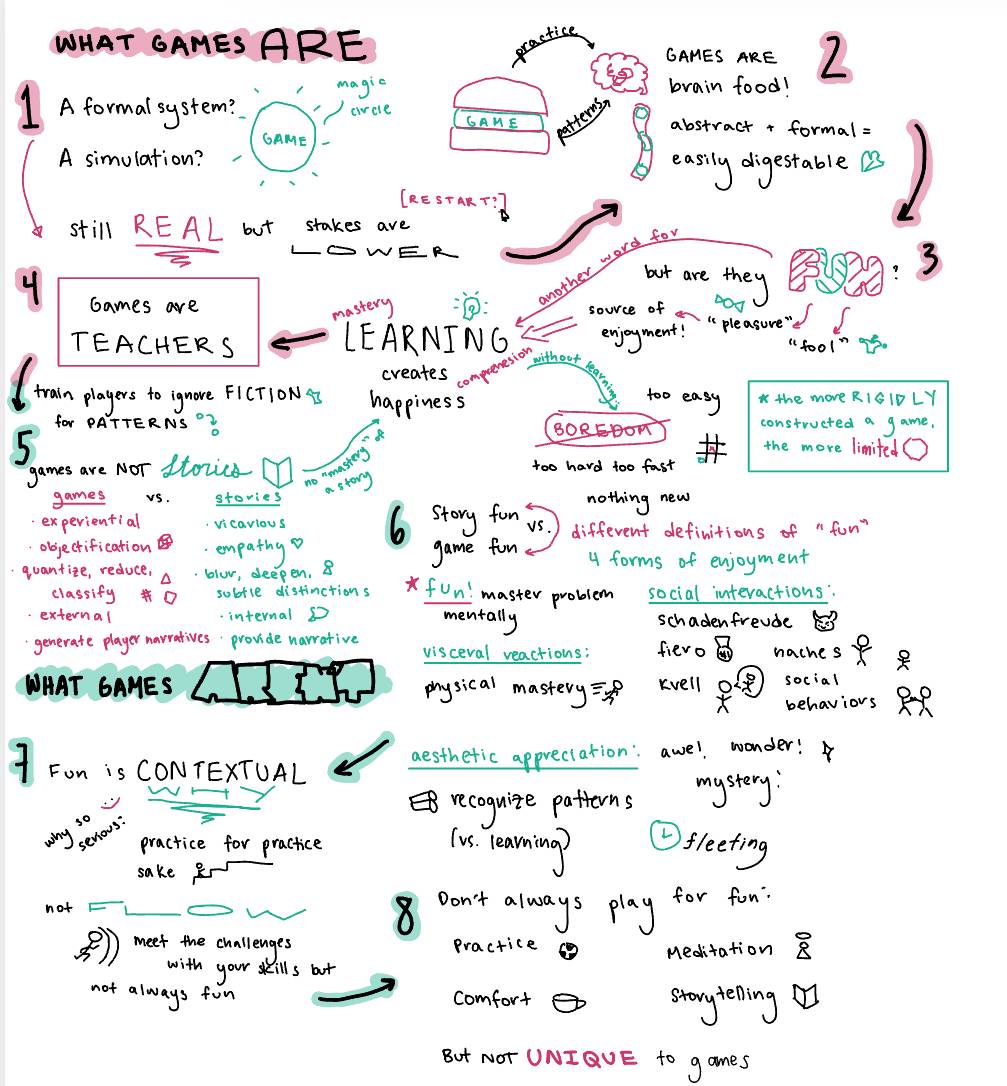 WHAT GAMES ARE
1
A formal system?
A simulation?
magic
circle
GAME
still REAL but stakes are
LOWER
[RESTART?]
practice
GAME
patterns
2
GAMES ARE
brain food!
abstract + formal =
easily digestable
3
but are they FUN?
"pleasure"
"fool"
source of
enjoyment!
another word for
mastery
LEARNING
comprehesion
creates
happiness
without learning:
BOREDOM
too easy
too hard too fast
nothing new
* the more RIGIDLY
constructed a game,
the more limited
4
Games are
TEACHERS
train players to ignore FICTION
for PATTERNS
5
games are NOT Stories
no "mastery" of
a story
games vs. stories
· experiential
· objectification
· quantize, reduce,
classify #
· external
· generate player narratives
· vicarious
· empathy
· blur, deepen,
subtle distinctions
· internal
· provide narrative
6
Story fun
vs.
game fun
different definitions of "fun"
4 forms of enjoyment
* fun! master problem
mentally
visceral reactions:
physical mastery
social interactions:
schadenfreude
fiero
naches
kvell
social
behaviors
aesthetic appreciation:
awe! wonder!
mystery!
recognize patterns
(vs. learning)
fleeting
WHAT GAMES AREN'T
7
Fun is CONTEXTUAL
WHY
why so
serious:
practice for practice
sake
not FLOW
meet the challenges
with your skills but
not always fun
8
Don't always play for fun:
Practice
Meditation
Comfort
Storytelling
But NOT UNIQUE to games